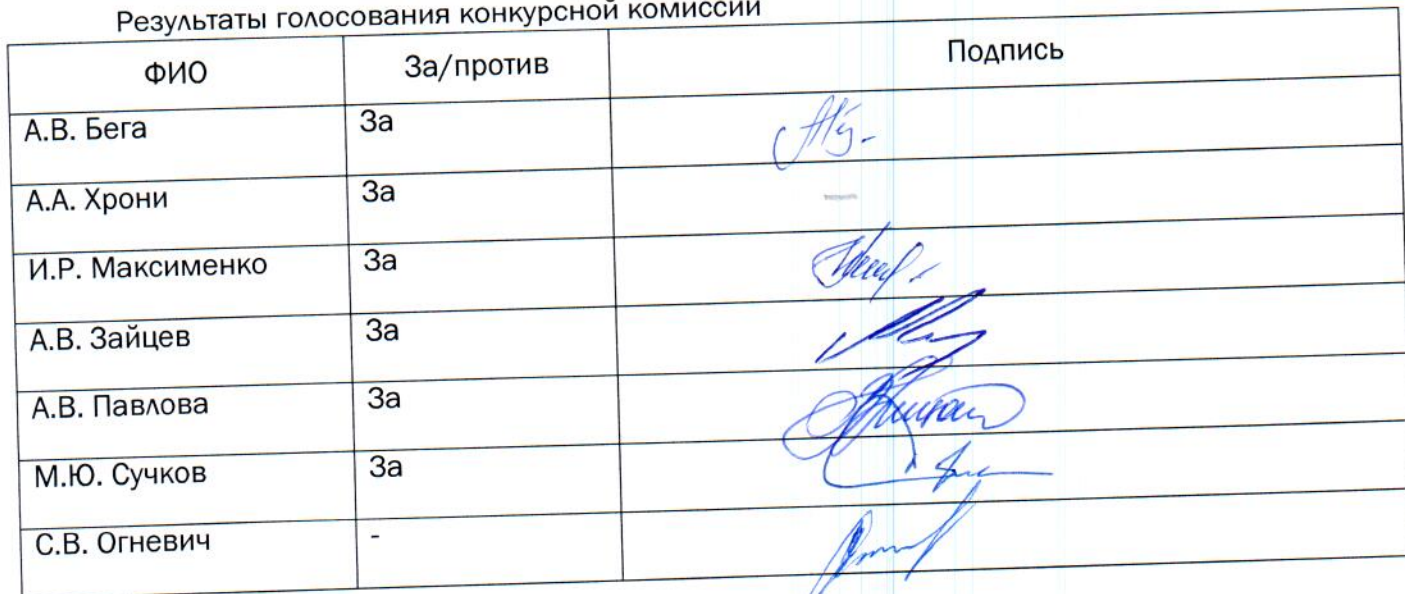 Результаты голосования конкурсной комиссии
ФИО За/против Подпись
А.В. Бега За
А.А. Хрони За —
И.Р. Максименко За
А.В. Зайцев За
А.В. Павлова За
М.Ю. Сучков За
С.В. Огневич -